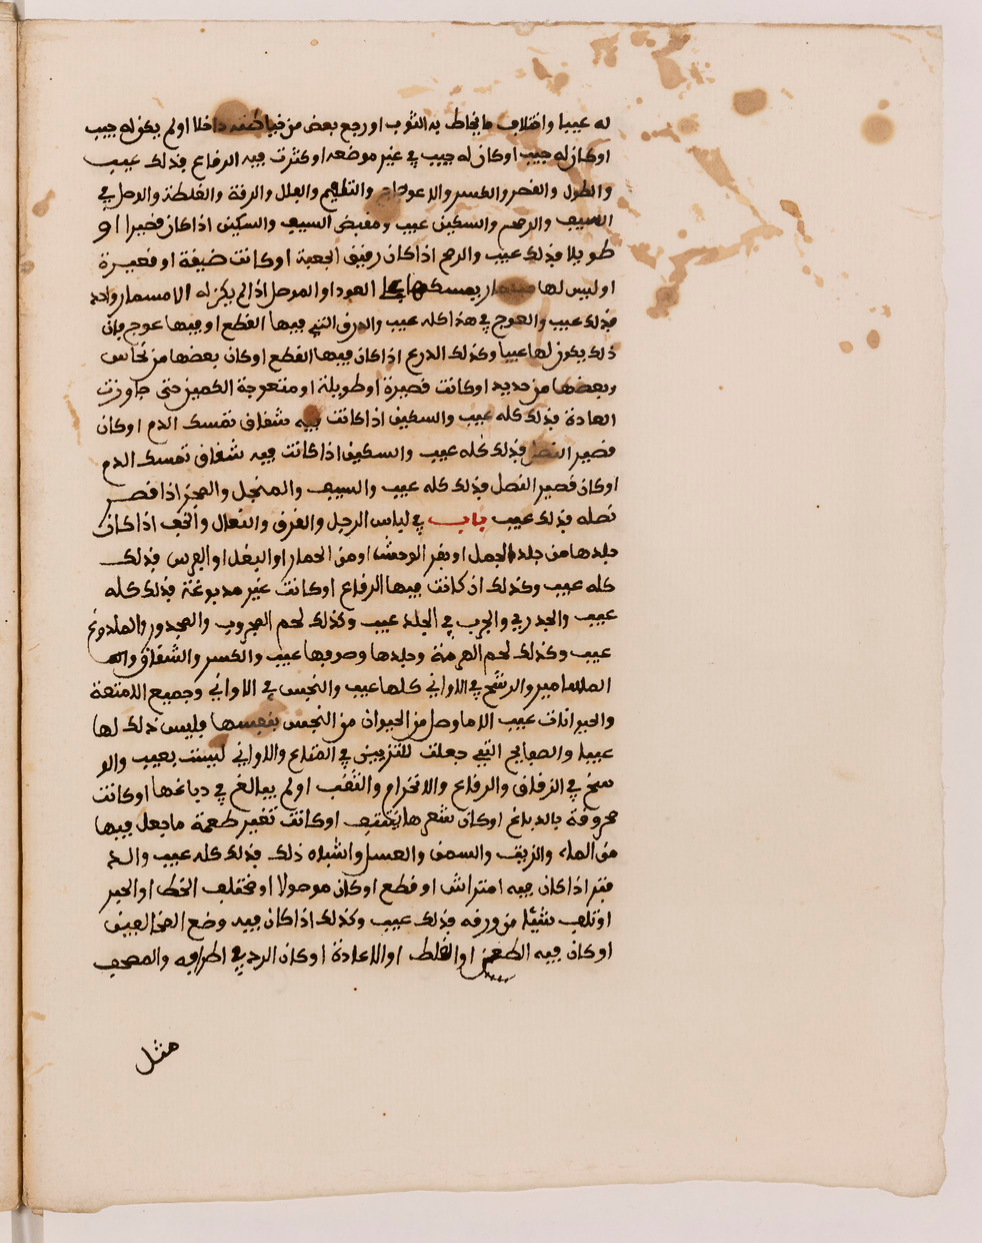 له عيبا واختلاف ما يخاط به الثوب او رجع بعض من خياطته داخلا او لم يكن له جيب
او كان له جيب او كان له جيب في غير موضعه او كثرت فيه الرقاع فذلك عيب
والطول والقصر والكسر والاعوجاج والتثليم والفلل والرقة والغلظة والوصل في
السيف والرمح والسكين عيب ومقبض السيف والسكين اذا كان قصيرا او
طويلا فذلك عيب والرمح اذا كان رقيق الجعبة او كانت ضيقة او قصيرة
او ليس لها مسمار يمسكها العود او الموصل اذا لم يكن له الا مسمار واحد
فذلك عيب والعوج في هذا كله عيب والدرق التي فيها القطع او فيها عوج فان
ذلك يكون لها عيبا وكذلك الدرع اذا كان فيها القطع او كان بعضها من نحاس
وبعضها من حديد او كانت قصيرة او طويلة او متعوجة الكمين حتى جاوزت
العادة فذلك كله عيب والسكين اذا كانت فيه شقاق تمسك الدم او كان
قصير النصل فذلك كله عيب والسكين اذا كانت فيه شقاق تمسك الدم
او كان قصير النصل فذلك كله عيب والسيف والمنجل والمجز اذا قصر
نصله فذلك عيب باب في لباس الرجل والقرق والنعال والخف اذا كان
جلدها من جلد الجمل او بقر الوحش او من الحمار او البغل او الفرس فذلك
كله عيب وكذلك ان كانت فيها الرقاع او كانت غير مدبوغة فذلك كله
عيب والجدري والجرب في الجلد عيب وكذلك لحم المجروب والمجدور والملدوغ
عيب وكذلك لحم الهرمة وجلدها وصوفها عيب والكسر والشقاق
المسامير والرشح في الاواني كلها عيب والنجس في الاواني وجميع الامتعة
والحيوانات عيب الا ما وصل من الحيوان من النجس بنفسها فليس ذلك لها
عيبا والصفايح التي جعلت للتزيين في المتاع والاواني ليست بعيب والو
سخ في الزقاق والرقاع والانخرام والثقب او لم يبالغ في دباغها او كانت
محروقة بالدباغ او كان شعرها ينتتف او كانت تغير طعمة ما يجعل فيها
من الماء والزيت والسمن والعسل واشباه ذلك فذلك كله عيب والد
فتر اذا كان فيه امتراش او قطع او كان موصولا او مختلف الخط او الحبر
او تلف شيئا من ورقه فذلك عيب وكذلك اذا كان فيه وضع
او كان فيه او الغلط او الاعادة او كان الرد في اطرافه والمصحف
مثل